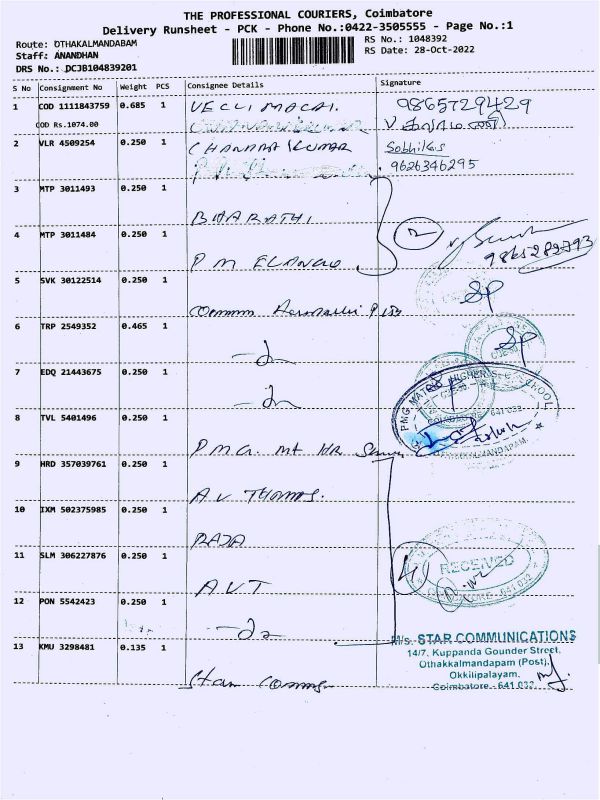 THE PROFESSIONAL COURIERS, Coimbatore
Delivery Runsheet - PCK - Phone No.:0422-3505555 - Page No.:1
Route: OTHAKALMANDABAM
RS No.: 1048392
Staff: ANANDHAN
RS Date: 28-Oct-2022
DRS No.: DCJB104839201
S No Consignment No Weight PCS Consignee Details Signature
1 COD 1111843759 0.685 1 9865729429
COD Rs.1074.00
2 VLR 4509254 0.250 1 CHANDRA KUMAR
9626346295
3 MTP 3011493 0.250 1
BHARATHI
4 MTP 3011484 0.250 1 2
9865282793
P M ELANGO
5 SVK 30122514 0.250 1
Sp
6 TRP 2549352 0.465 1
Sp
7 EDQ 21443675 0.250 1
8 TVL 5401496 0.250 1
PMG MT HR
9 HRD 357039761 0.250 1
A V THOMAS.
10 IXM 502375985 0.250 1
RAJA
11 SLM 306227876 0.250 1 4 RECEIVED
COIMBATORE - 641 032
AVT
12 PON 5542423 0.250 1
13 KMU 3298481 0.135 1
M/s. STAR COMMUNICATIONS
14/7, Kuppanda Gounder Street,
Othakkalmandapam (Post),
Okkilipalayam,
Coimbatore - 641 032
Star Comms